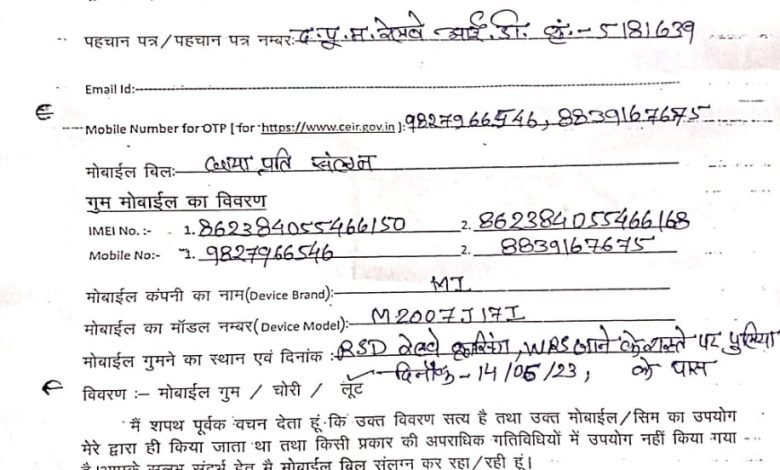 पहचान पत्र/पहचान पत्र नम्बर: द.पू.म.रेल्वे आई.डी. क्रं.- 5181639
Email Id:
Mobile Number for OTP [for https://www.ceir.gov.in]: 9827966546, 8839167675
मोबाईल बिलः छाया प्रति संलग्न
गुम मोबाईल का विवरण
IMEI No. :- 1. 862384055466150 2. 862384055466168
Mobile No:- 1. 9827966546 2. 8839167675
मोबाईल कंपनी का नाम(Device Brand): MI
मोबाईल का मॉडल नम्बर(Device Model): M2007J17I
मोबाईल गुमने का स्थान एवं दिनांक : RSD रेल्वे क्रासिंग, WRS जाने के रास्ते पर पुलिया
के पास
दिनाँक - 14/05/23,
विवरण :– मोबाईल गुम / चोरी / लूंट
मैं शपथ पूर्वक वचन देता हूं कि उक्त विवरण सत्य है तथा उक्त मोबाईल/सिम का उपयोग
मेरे द्वारा ही किया जाता था तथा किसी प्रकार की अपराधिक गतिविधियों में उपयोग नहीं किया गया
है। आपके सुलभ संदर्भ हेतु मै मोबाईल बिल संलग्न कर रहा/रही हूं।